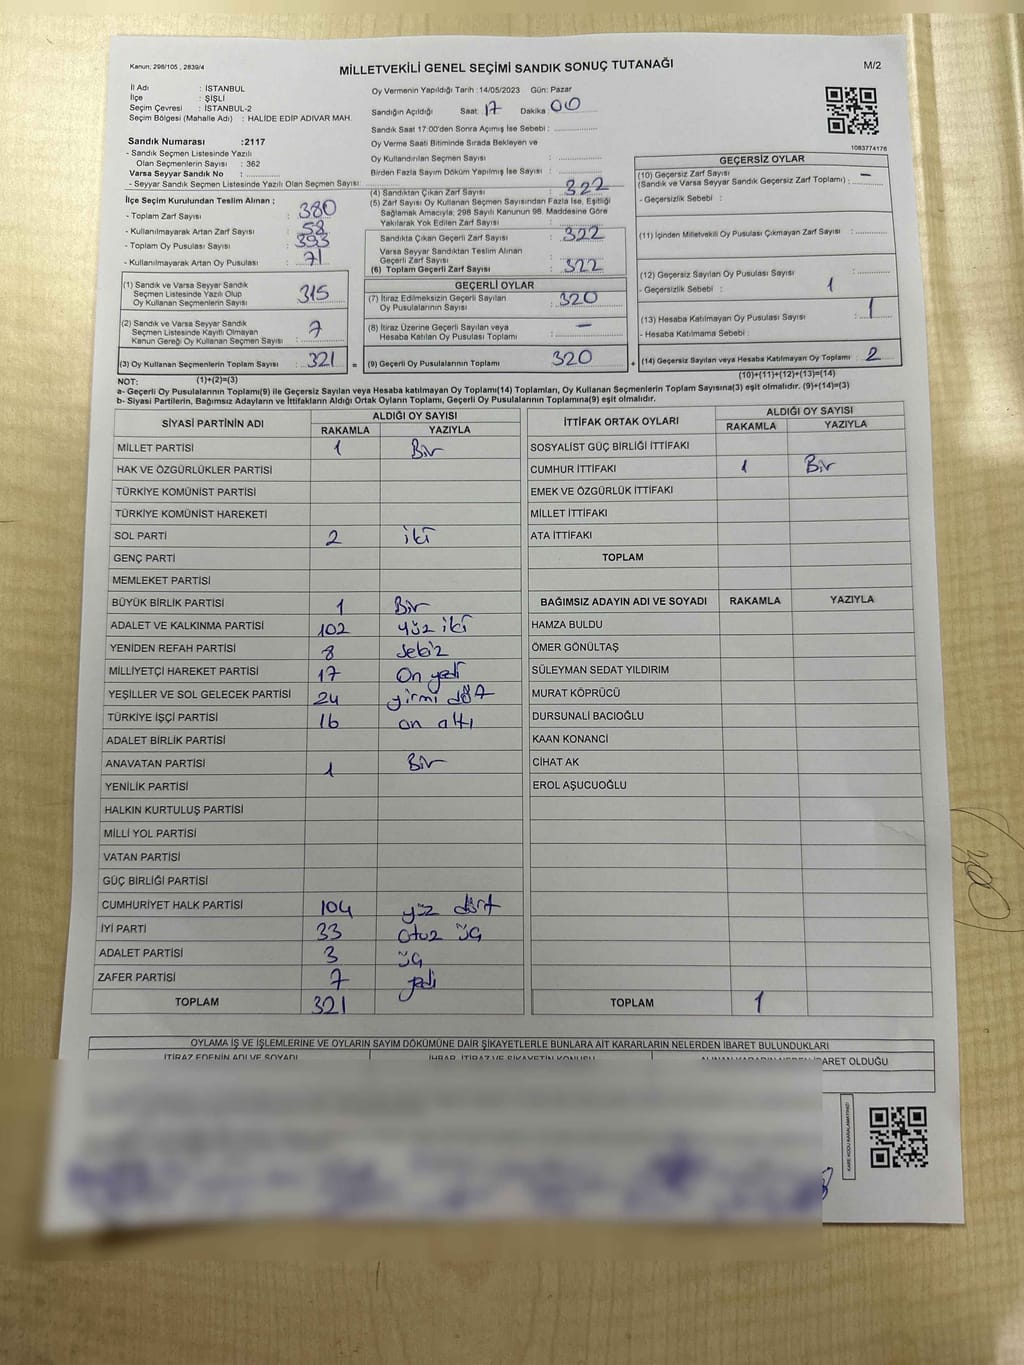 Kanun: 298/105 , 2839/4
MİLLETVEKİLİ GENEL SEÇİMİ SANDIK SONUÇ TUTANAĞI
M/2
İl Adı : İSTANBUL
İlçe : ŞİŞLİ
Seçim Çevresi : İSTANBUL-2
Seçim Bölgesi (Mahalle Adı) : HALİDE EDİP ADIVAR MAH.
Sandık Numarası :2117
- Sandık Seçmen Listesinde Yazılı
Olan Seçmenlerin Sayısı : 362
Varsa Seyyar Sandık No :
- Seyyar Sandık Seçmen Listesinde Yazılı Olan Seçmen Sayısı:
İlçe Seçim Kurulundan Teslim Alınan ;
- Toplam Zarf Sayısı : 380
- Kullanılmayarak Artan Zarf Sayısı : 58
- Toplam Oy Pusulası Sayısı : 393
- Kullanılmayarak Artan Oy Pusulası : 71
(1) Sandık ve Varsa Seyyar Sandık
Seçmen Listesinde Yazılı Olup
Oy Kullanan Seçmenlerin Sayısı : 315
(2) Sandık ve Varsa Seyyar Sandık
Seçmen Listesinde Kayıtlı Olmayan
Kanun Gereği Oy Kullanan Seçmen Sayısı : 7
(3) Oy Kullanan Seçmenlerin Toplam Sayısı : 321 =
Oy Vermenin Yapıldığı Tarih : 14/05/2023 Gün: Pazar
Sandığın Açıldığı Saat: 17 Dakika : 00
Sandık Saat 17:00'den Sonra Açımış İse Sebebi :
Oy Verme Saati Bitiminde Sırada Bekleyen ve
Oy Kullandırılan Seçmen Sayısı :
Birden Fazla Sayım Döküm Yapılmış İse Sayısı :
(4) Sandıktan Çıkan Zarf Sayısı : 322
(5) Zarf Sayısı Oy Kullanan Seçmen Sayısından Fazla İse, Eşitliği
Sağlamak Amacıyla; 298 Sayılı Kanunun 98. Maddesine Göre
Yakılarak Yok Edilen Zarf Sayısı :
Sandıkta Çıkan Geçerli Zarf Sayısı : 322
Varsa Seyyar Sandıktan Teslim Alınan
Geçerli Zarf Sayısı :
(6) Toplam Geçerli Zarf Sayısı : 322
GEÇERLİ OYLAR
(7) İtiraz Edilmeksizin Geçerli Sayılan
Oy Pusulasının Sayısı : 320
(8) İtiraz Üzerine Geçerli Sayılan veya
Hesaba Katılan Oy Pusulası Toplamı : —
(9) Geçerli Oy Pusulalarının Toplamı : 320 +
1083774176
GEÇERSİZ OYLAR
(10) Geçersiz Zarf Sayısı
(Sandık ve Varsa Seyyar Sandık Geçersiz Zarf Toplamı) : —
- Geçersizlik Sebebi :
(11) İçinden Milletvekili Oy Pusulası Çıkmayan Zarf Sayısı :
(12) Geçersiz Sayılan Oy Pusulası Sayısı :
- Geçersizlik Sebebi : 1
(13) Hesaba Katılmayan Oy Pusulası Sayısı : 1
- Hesaba Katılmama Sebebi :
(14) Geçersiz Sayılan veya Hesaba Katılmayan Oy Toplamı : 2
NOT: (1)+(2)=(3) (10)+(11)+(12)+(13)=(14)
a- Geçerli Oy Pusulalarının Toplamı(9) ile Geçersiz Sayılan veya Hesaba katılmayan Oy Toplamı(14) Toplamları, Oy Kullanan Seçmenlerin Toplam Sayısına(3) eşit olmalıdır. (9)+(14)=(3)
b- Siyasi Partilerin, Bağımsız Adayların ve İttifakların Aldığı Ortak Oyların Toplamı, Geçerli Oy Pusulalarının Toplamına(9) eşit olmalıdır.
SİYASİ PARTİNİN ADI ALDIĞI OY SAYISI
RAKAMLA YAZIYLA
MİLLET PARTİSİ 1 Bir
HAK VE ÖZGÜRLÜKLER PARTİSİ
TÜRKİYE KOMÜNİST PARTİSİ
TÜRKİYE KOMÜNİST HAREKETİ
SOL PARTİ 2 iki
GENÇ PARTİ
MEMLEKET PARTİSİ
BÜYÜK BİRLİK PARTİSİ 1 Bir
ADALET VE KALKINMA PARTİSİ 102 yüz iki
YENİDEN REFAH PARTİSİ 8 sekiz
MİLLİYETÇİ HAREKET PARTİSİ 17 On yedi
YEŞİLLER VE SOL GELECEK PARTİSİ 24 yirmi dört
TÜRKİYE İŞÇİ PARTİSİ 16 on altı
ADALET BİRLİK PARTİSİ
ANAVATAN PARTİSİ 1 Bir
YENİLİK PARTİSİ
HALKIN KURTULUŞ PARTİSİ
MİLLİ YOL PARTİSİ
VATAN PARTİSİ
GÜÇ BİRLİĞİ PARTİSİ
CUMHURİYET HALK PARTİSİ 104 yüz dört
İYİ PARTİ 33 otuz üç
ADALET PARTİSİ 3 üç
ZAFER PARTİSİ 7 yedi
TOPLAM 321
İTTİFAK ORTAK OYLARI ALDIĞI OY SAYISI
RAKAMLA YAZIYLA
SOSYALİST GÜÇ BİRLİĞİ İTTİFAKI
CUMHUR İTTİFAKI 1 Bir
EMEK VE ÖZGÜRLÜK İTTİFAKI
MİLLET İTTİFAKI
ATA İTTİFAKI
TOPLAM
BAĞIMSIZ ADAYIN ADI VE SOYADI RAKAMLA YAZIYLA
HAMZA BULDU
ÖMER GÖNÜLTAŞ
SÜLEYMAN SEDAT YILDIRIM
MURAT KÖPRÜCÜ
DURSUNALİ BACIOĞLU
KAAN KONANCİ
CİHAT AK
EROL AŞUCUOĞLU
TOPLAM 1
OYLAMA İŞ VE İŞLEMLERİNE VE OYLARIN SAYIM DÖKÜMÜNE DAİR ŞİKAYETLERLE BUNLARA AİT KARARLARIN NELERDEN İBARET BULUNDUKLARI
İTİRAZ EDENİN ADI VE SOYADI İHBAR, İTİRAZ VE ŞİKAYETİN KONUSU ALINAN KARARIN NEDEN İBARET OLDUĞU
KARE KODU KARALAMAYINIZ!